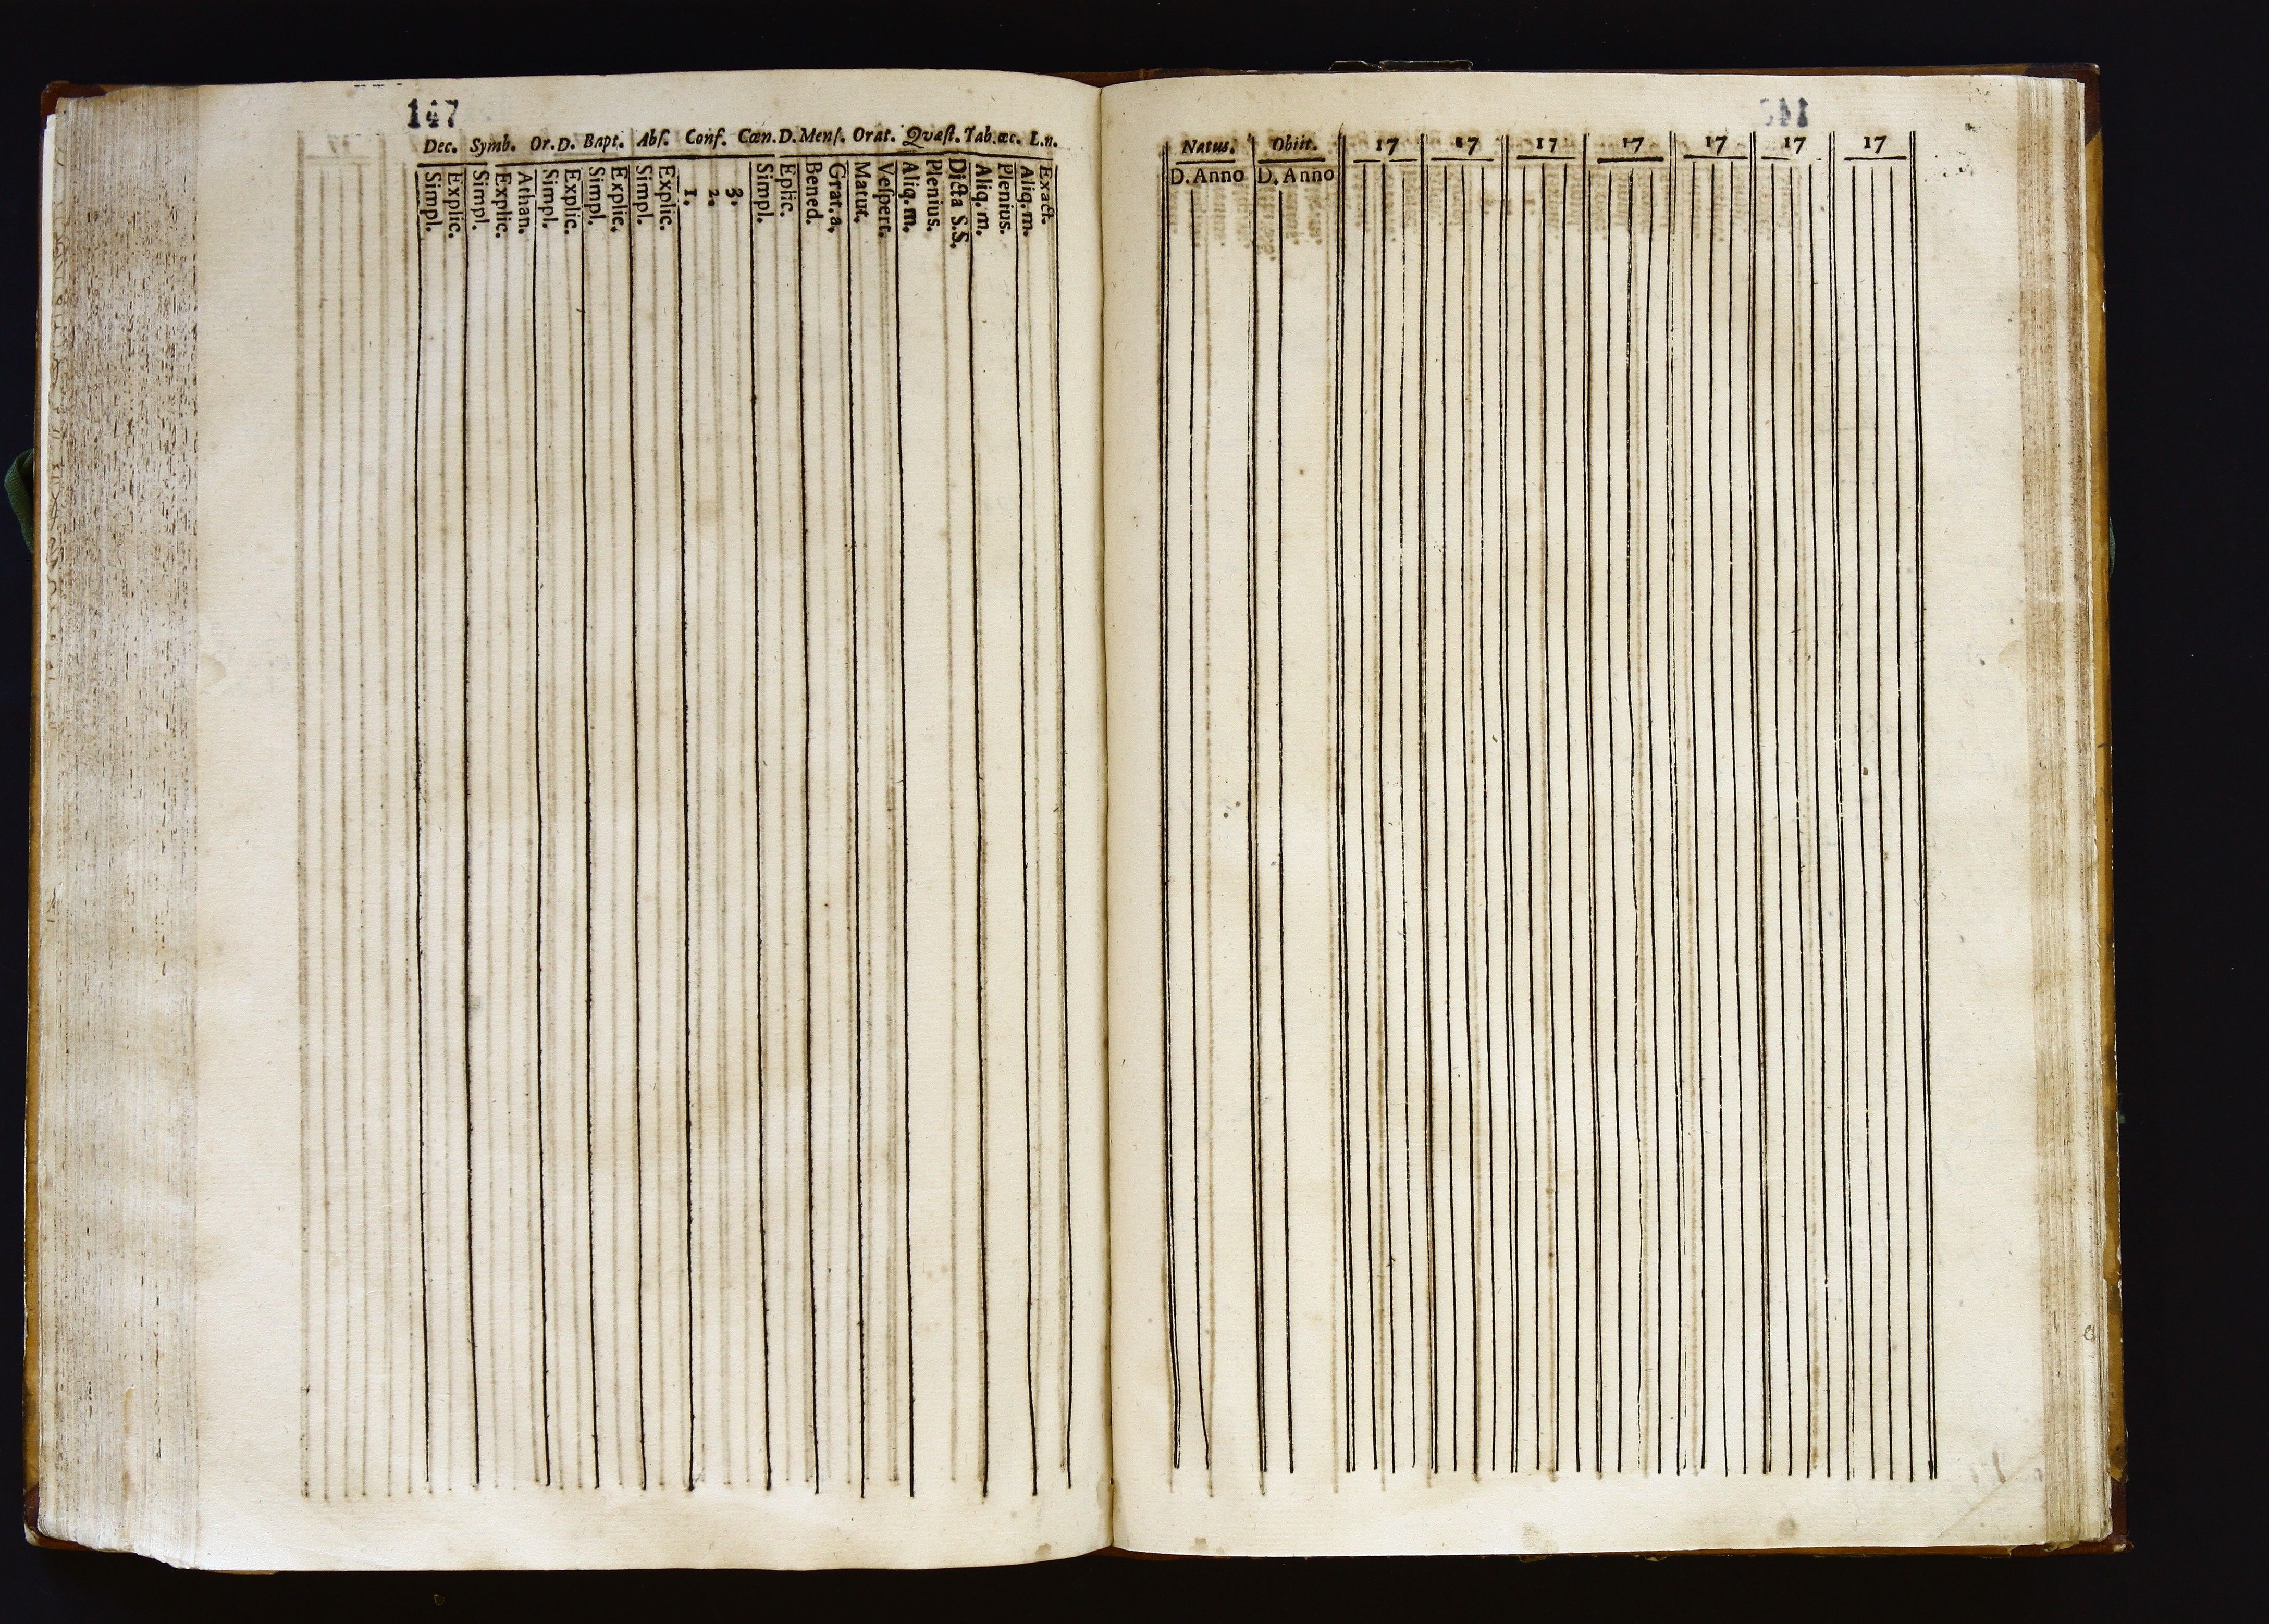 147
Dec. Symb. Or.D. Bapt. Abſ. Conf. Cœn.D. Menſ. Orat. Qvæſt. Tab.œc. L.n.
Simpl.
Explic.
Simpl.
Explic.
Athan.
Simpl.
Explic.
Simpl.
Explic.
Simpl.
Explic.
1.
2.
3.
Simpl.
Eplic.
Bened.
Grat.a.
Matut.
Veſpert.
Aliq.m.
Plenius.
Dicta S.S.
Aliq.m.
Plenius.
Aliq.m.
Exact.
Natus. Obiit. 17 17 17 17 17 17 17
D. Anno D. Anno